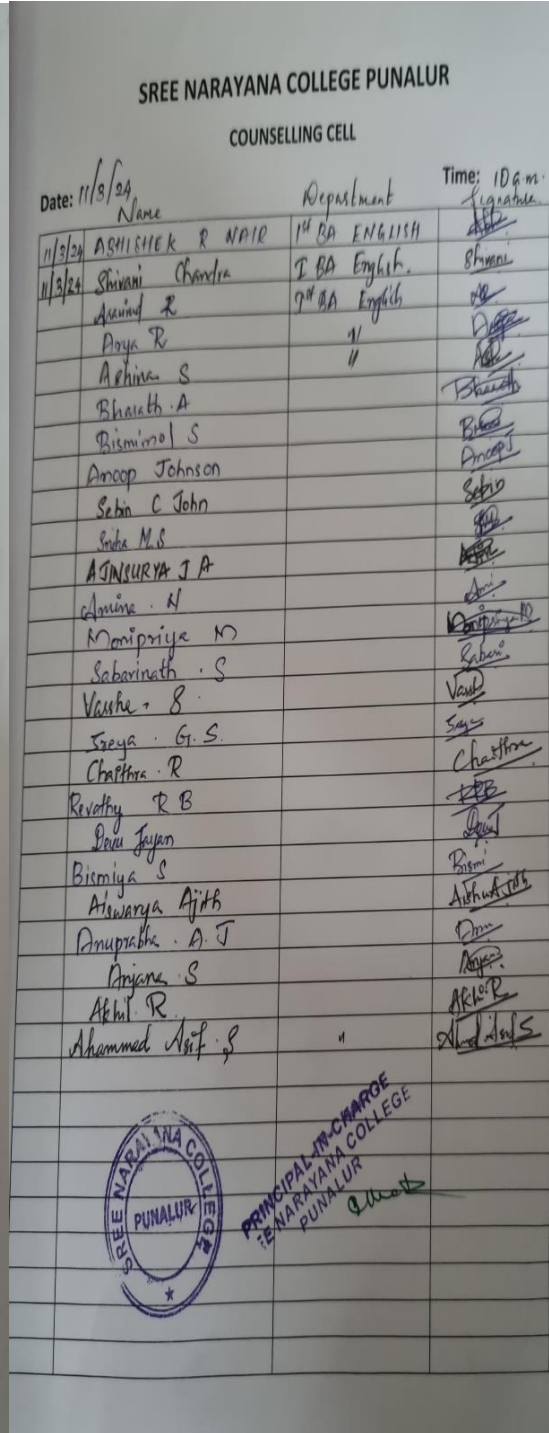 SREE NARAYANA COLLEGE PUNALUR
COUNSELLING CELL
Date: 11/3/24 Time: 10 a.m.
Name Department Signature
11/3/24 ABHISHEK R NAIR 1st BA ENGLISH
11/3/24 Shivani Chandra I BA English. Shivani
Aravind R 1st BA English
Arya R "
Ashina S "
Bharath . A Bharath
Bismimol S
Anoop Johnson Anoop J
Sebin C John Sebin
M.S
AJINSURYA J A
Amina . N
Monipriya M Monipriya
Sabarinath . S Sabari
Varsha . S Varsh
Sreya . G. S. Sreya
Chaithra . R Chaithra
Revathy R B RRB
Devu Jayan Devu J
Bismiya S Bismi
Aiswarya Ajith
Anuprabha . A. J Anu
Anjana . S Anjana
Akhil . R Akhil R
Ahammed Asif . S "
SREE NARAYANA COLLEGE
PUNALUR
PRINCIPAL-IN-CHARGE
EE NARAYANA COLLEGE
PUNALUR